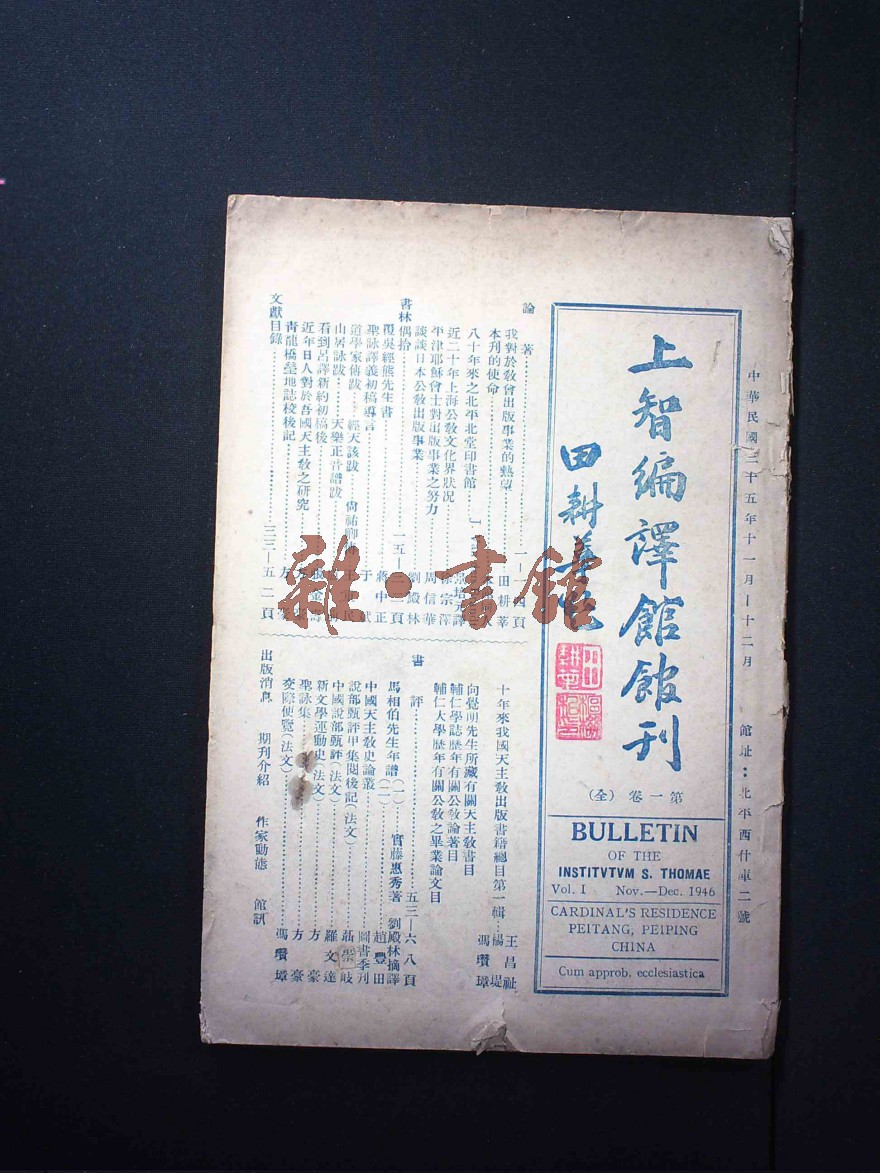 中華民國三十五年十一月—十二月　館址：北平西什庫二號
上智編譯館館刊
田耕莘
第一卷（全）
BULLETIN
OF THE
INSTITVTVM S. THOMAE
Vol. I Nov.—Dec. 1946
CARDINAL'S RESIDENCE
PEITANG, PEIPING
CHINA
Cum approb. ecclesiastica
論著……一—一四頁
我對於敎會出版事業的熱望……田耕莘
本刊的使命
八十年來之北平北堂印書館
近二十年上海公敎文化界狀况……徐宗澤
平津耶穌會士對出版事業之努力……周信華
談談日本公敎出版事業……劉殿林
書林偶拾……一五—三二頁
覆吳經熊先生書……蔣中正
聖詠譯義初稿導言……于斌
道學家傳跋　經天該跋　尙祐卿
山居詠跋　天樂正音譜跋
看到呂譯新約初稿後
近年日人對於吾國天主敎之研究
靑龍橋塋地誌校後記……方豪
文獻目錄……三三—五二頁
十年來我國天主敎出版書籍總目第一輯……王昌祉 楊堤
向覺明先生所藏有關天主敎書目……馮瓚璋
輔仁學誌歷年有關公敎論著目
輔仁大學歷年有關公敎之畢業論文目
書評……五三—六八頁
馬相伯先生年譜（一）……實藤惠秀著　劉殿林摘譯
（二）……趙豐田
中國天主敎史論叢……圖書季刊
說部甄評甲集閱後記（法文）
中國說部甄評（法文）……聶崇岐
新文學運動史（法文）……羅文達
聖詠集……方豪
交際便覽（法文）……馮瓚璋
出版消息　期刊介紹　作家動態　館訊
雜·書館